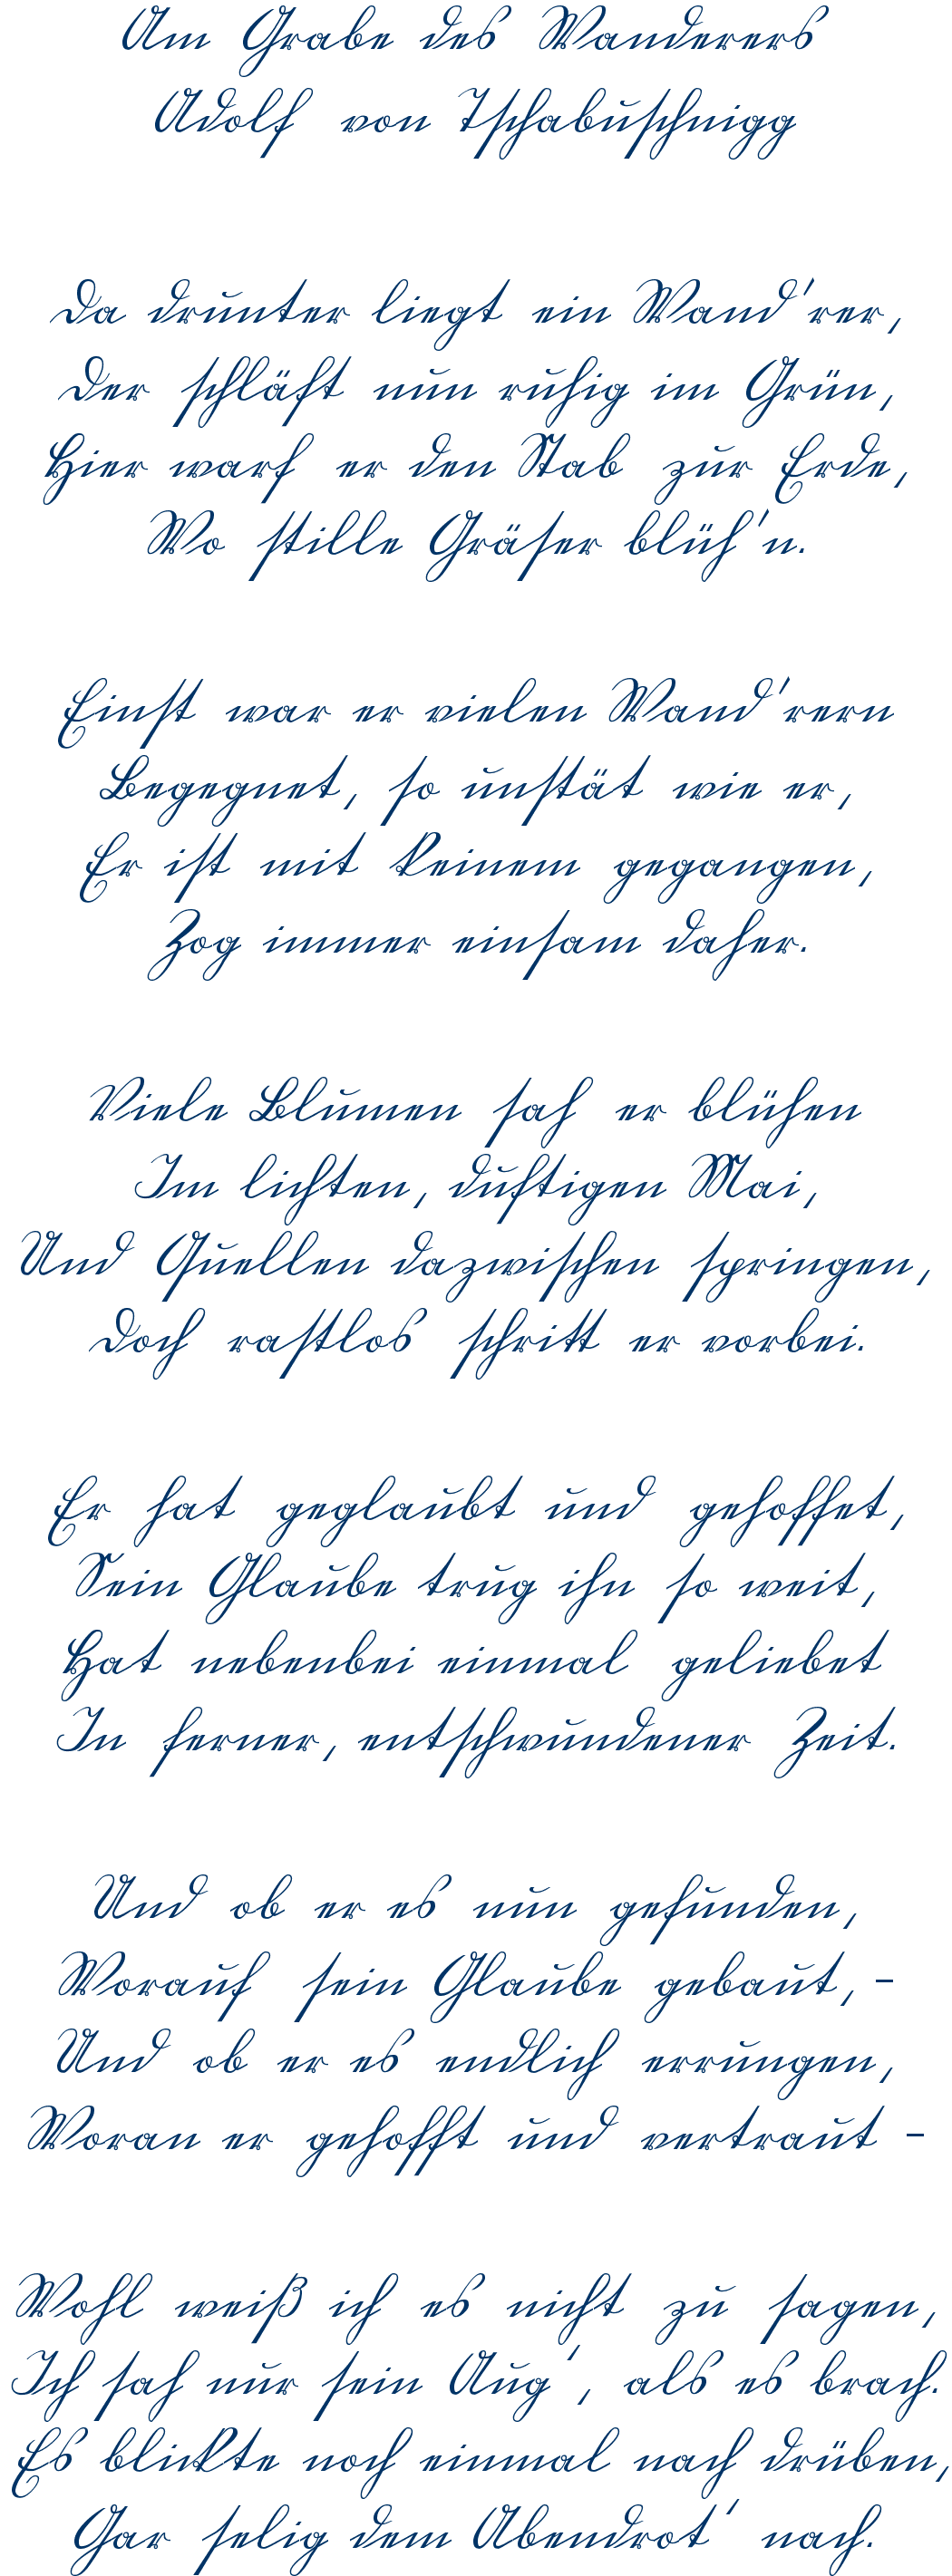 Am Grabe des Wanderers
Adolf von Tschabuschnigg
Da drunter liegt ein Wand'rer,
Der schläft nun ruhig im Grün,
Hier warf er den Stab zur Erde,
Wo stille Gräser blüh'n.
Einst war er vielen Wand'rern
Begegnet, so unstät wie er,
Er ist mit keinem gegangen,
Zog immer einsam daher.
Viele Blumen sah er blühen
Im lichten, duftigen Mai,
Und Quellen dazwischen springen,
Doch rastlos schritt er vorbei.
Er hat geglaubt und gehoffet,
Sein Glaube trug ihn so weit,
Hat nebenbei einmal geliebet
In ferner, entschwundener Zeit.
Und ob er es nun gefunden,
Worauf sein Glaube gebaut, –
Und ob er es endlich errungen,
Woran er gehofft und vertraut –
Wohl weiß ich es nicht zu sagen,
Ich sah nur sein Aug', als es brach.
Es blickte noch einmal nach drüben,
Gar selig dem Abendrot' nach.